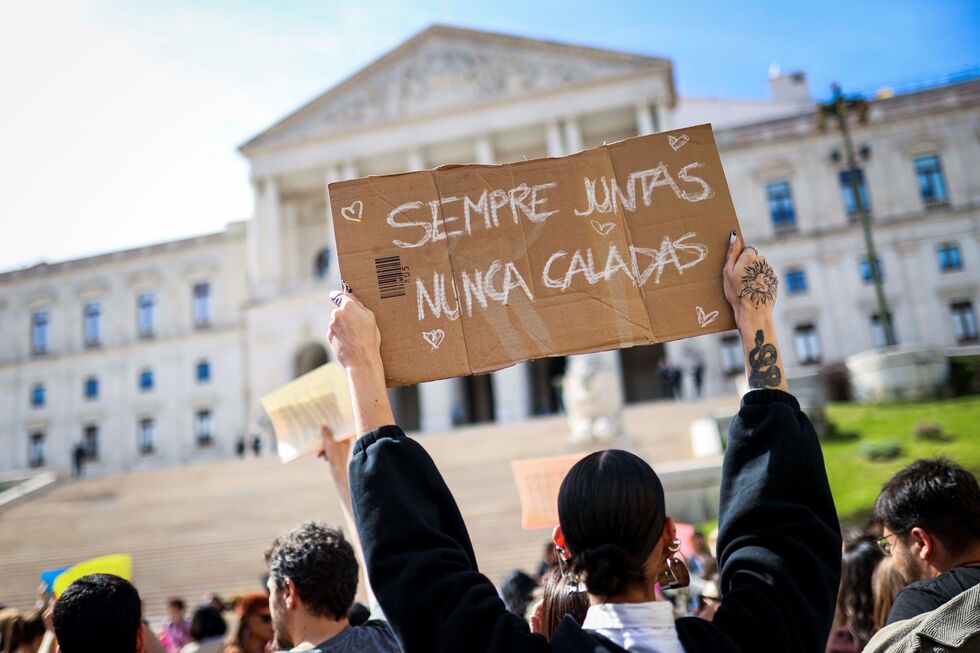 SIEMPRE JUNTAS
NUNCA CALADAS